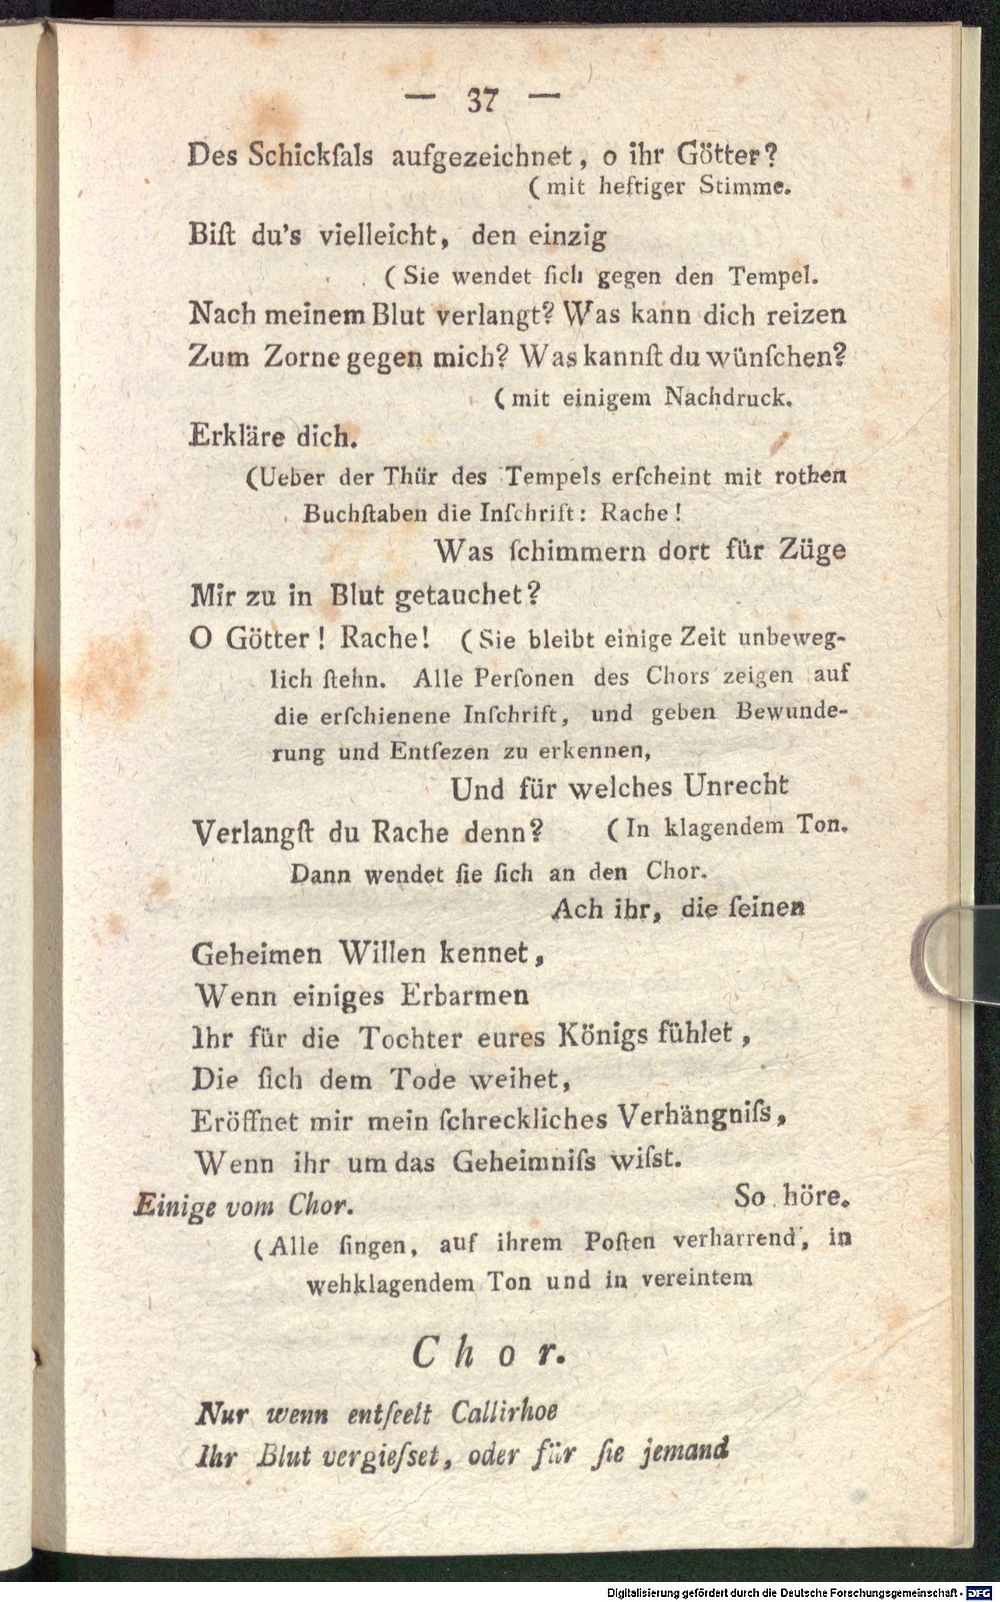 — 37 —
Des Schickſals aufgezeichnet, o ihr Götter?
(mit heftiger Stimme.
Biſt du's vielleicht, den einzig
(Sie wendet ſich gegen den Tempel.
Nach meinem Blut verlangt? Was kann dich reizen
Zum Zorne gegen mich? Was kannſt du wünſchen?
(mit einigem Nachdruck.
Erkläre dich.
(Ueber der Thür des Tempels erſcheint mit rothen
Buchſtaben die Inſchrift: Rache!
Was ſchimmern dort für Züge
Mir zu in Blut getauchet?
O Götter! Rache! (Sie bleibt einige Zeit unbeweg-
lich ſtehn. Alle Perſonen des Chors zeigen auf
die erſchienene Inſchrift, und geben Bewunde-
rung und Entſezen zu erkennen,
Und für welches Unrecht
Verlangſt du Rache denn? (In klagendem Ton.
Dann wendet ſie ſich an den Chor.
Ach ihr, die ſeinen
Geheimen Willen kennet,
Wenn einiges Erbarmen
Ihr für die Tochter eures Königs fühlet,
Die ſich dem Tode weihet,
Eröffnet mir mein ſchreckliches Verhängniſs,
Wenn ihr um das Geheimniſs wiſst.
Einige vom Chor. So höre.
(Alle ſingen, auf ihrem Poſten verharrend, in
wehklagendem Ton und in vereintem
Chor.
Nur wenn entſeelt Callirhoe
Ihr Blut vergieſset, oder für ſie jemand
Digitalisierung gefördert durch die Deutsche Forschungsgemeinschaft - DFG